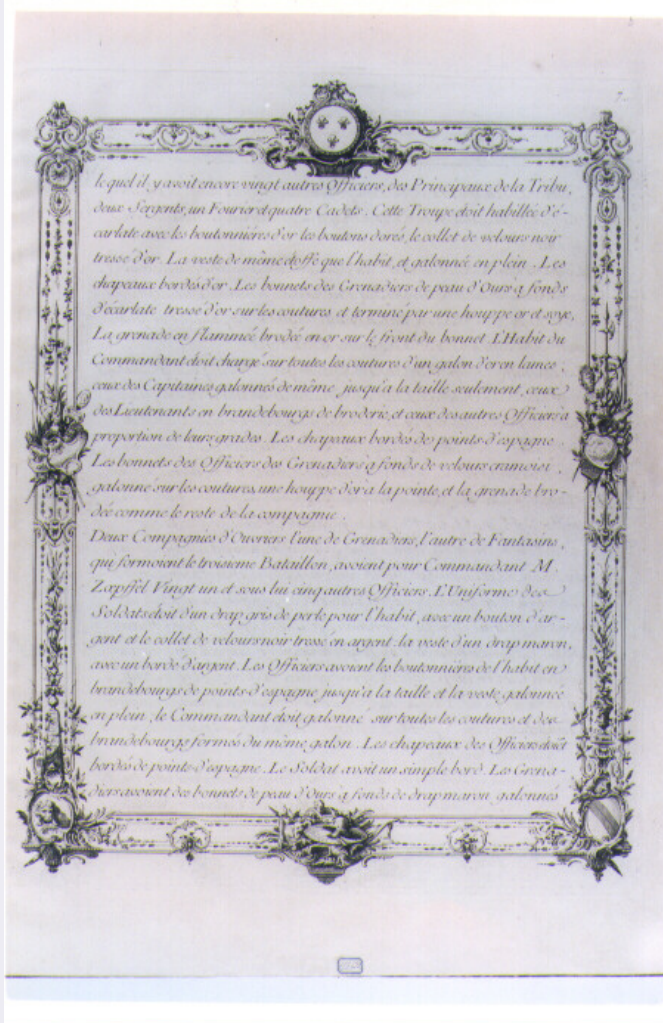 lequel il y avoit encore vingt autres Officiers, des Principaux de la Tribu,
deux Sergents, un Fourier et quatre Cadets. Cette Troupe étoit habillée d'é-
carlate avec les boutonniéres d'or les boutons dorés, le collet de velours noir
tressé d'or. La veste de même étoffe que l'habit, et galonnée en plein. Les
chapeaux bordés d'or. Les bonnets des Grenadiers de peau d'Ours a fonds
d'écarlate tressé d'or sur les coutures et terminé par une houppe or et soye,
La grenade enflammée brodée en or sur le front du bonnet. L'Habit du
Commandant étoit chargé sur toutes les coutures d'un galon d'or en lames,
ceux des Capitaines galonnés de même jusqu'a la taille seulement, ceux
des Lieutenants en brandebourgs de broderie, et ceux des autres Officiers a
proportion de leurs grades. Les chapeaux bordés de points d'espagne.
Les bonnets des Officiers des Grenadiers a fonds de velours cramoisi,
galonné sur les coutures, une houppe d'or a la pointe, et la grenade bro-
dée comme le reste de la compagnie.
Deux Compagnies d'Ouvriers l'une de Grenadiers, l'autre de Fantasins,
qui formoient le troisieme Bataillon, avoient pour Commandant M.
Zæpffel Vingt un et sous lui cinq autres Officiers. L'Uniforme des
Soldats étoit d'un drap gris de perle pour l'habit, avec un bouton d'ar-
gent et le collet de velours noir tressé en argent. la veste d'un drap maron,
avec un bordé d'argent. Les Officiers avoient les boutonnières de l'habit en
brandebourgs de points d'espagne jusqu'a la taille et la veste galonnée
en plein, le Commandant étoit galonné sur toutes les coutures et des
brandebourgs formés du même galon. Les chapeaux des Officiers étoiẽt
bordés de points d'espagne. Le Soldat avoit un simple bord. Les Grena-
diers avoient des bonnets de peau d'Ours a fonds de drap maron, galonnés